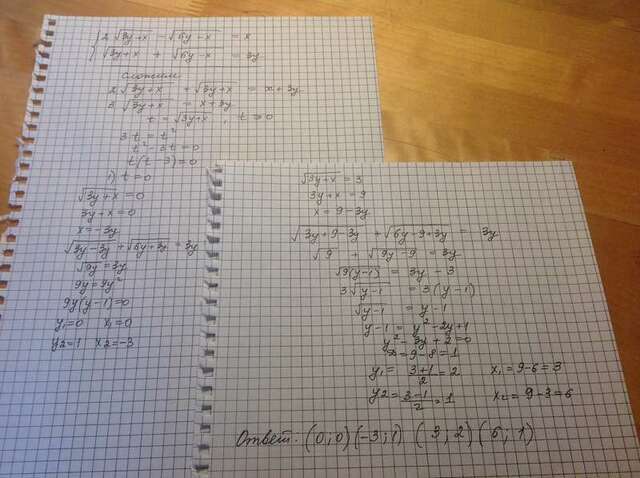 2√3y+x - √6y-x = x
√3y+x + √6y-x = 3y
сложим
2√3y+x + √3y+x = x+3y
3√3y+x = x+3y
t = √3y+x, t ≥ 0
3t = t²
t² - 3t = 0
t(t-3) = 0
1) t = 0
√3y+x = 0
3y+x = 0
x = -3y
√3y-3y + √6y+3y = 3y
√9y = 3y
9y = 9y²
9y(y-1) = 0
y₁=0 x₁=0
y2=1 x2=-3
√3y+x = 3
3y+x = 9
x = 9-3y
√3y+9-3y + √6y-9+3y = 3y
√9 + √9y-9 = 3y
√9(y-1) = 3y-3
3√y-1 = 3(y-1)
√y-1 = y-1
y-1 = y²-2y+1
y²-3y+2=0
D=9-8=1
y₁= 3+1/2 = 2 x₁=9-6=3
y2= 3-1/2 = 1 x₂=9-3=6
Ответ: (0;0) (-3;1) (3;2) (6;1)